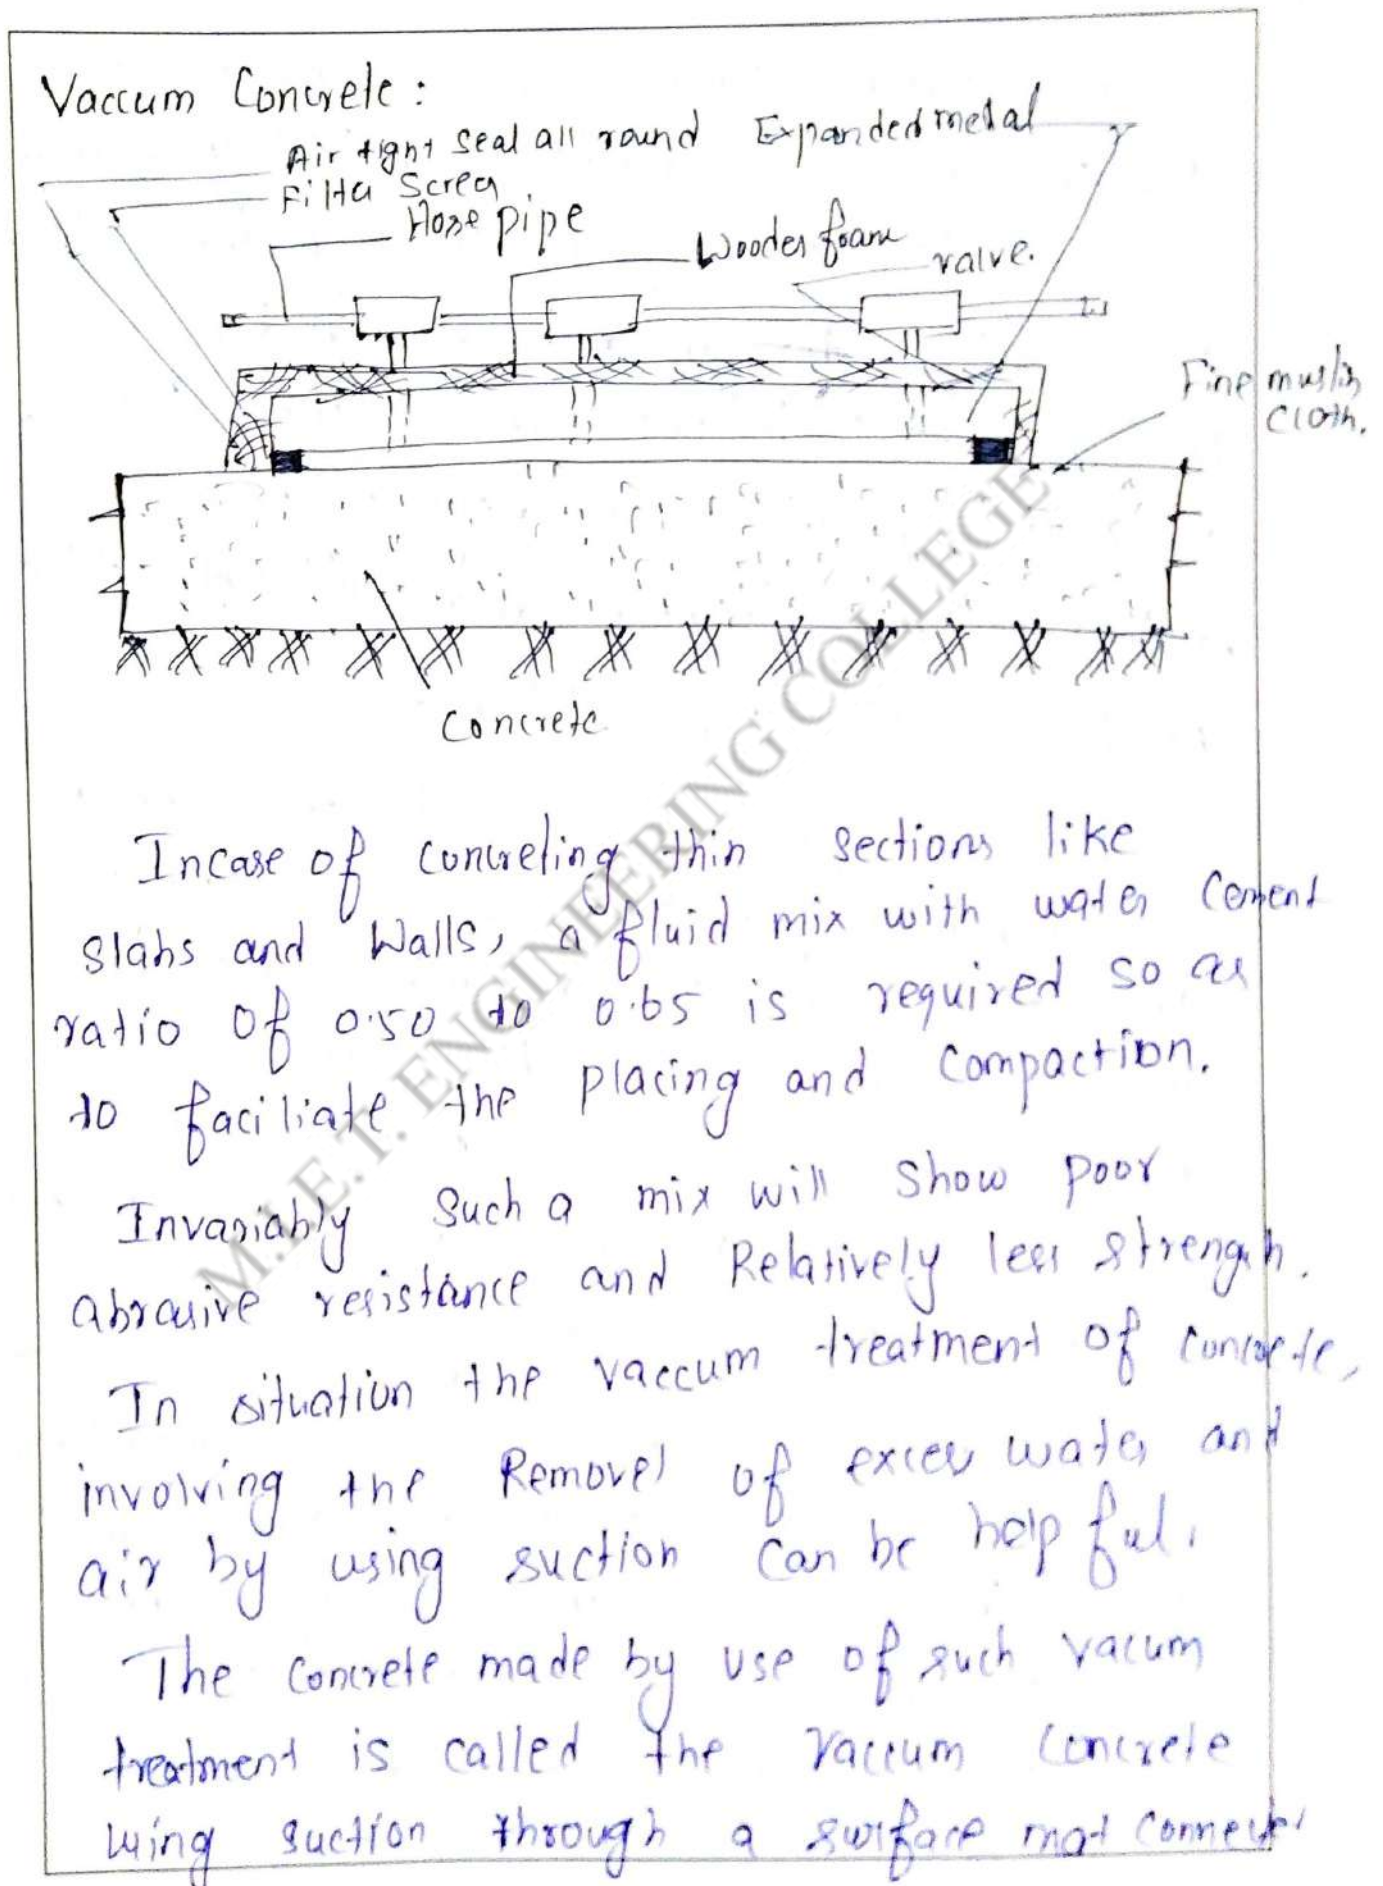 Vaccum Concrete:
Air tight seal all round Expanded metal
Filter Screen
Hose pipe
Wooden foam
valve.
Fine muslin
cloth.
Concrete
Incase of concreting thin sections like
slabs and Walls, a fluid mix with water cement
ratio of 0.50 to 0.65 is required so as
to faciliate the placing and compaction.
Invariably such a mix will show poor
abrasive resistance and Relatively less strength.
In situation the vaccum treatment of concrete,
involving the Removel of excess water and
air by using suction can be helpful.
The concrete made by use of such vacum
treatment is called the vaccum concrete
using suction through a surface mat connected
M.I.E.T. ENGINEERING COLLEGE